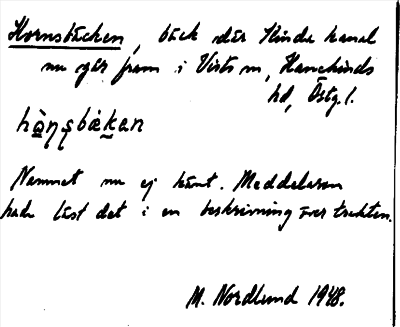 Hornsbäcken, bäck där Kinda kanal
nu går fram i Vists sn, Hanekinds
hd, Östg. l.
hò̱ṇʂbæḵan
Namnet nu ej känt. Meddelaren
hade läst det i en beskrivning över trakten.
M. Nordlund 1948.